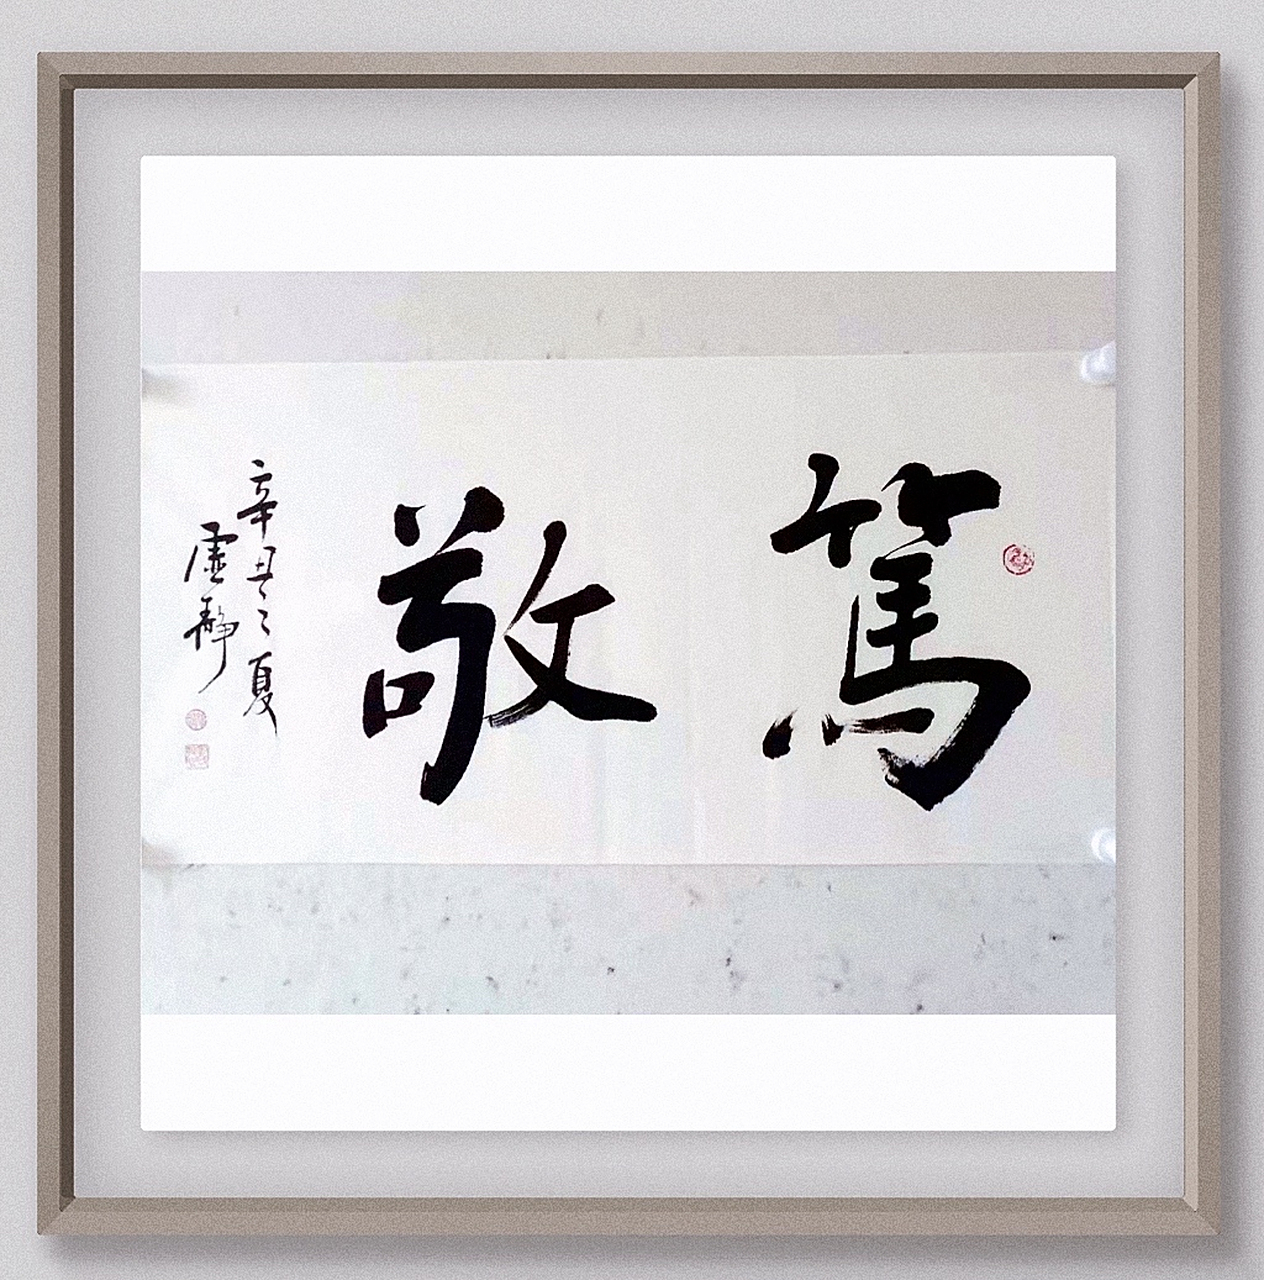 篤敬
辛丑之夏
虛靜